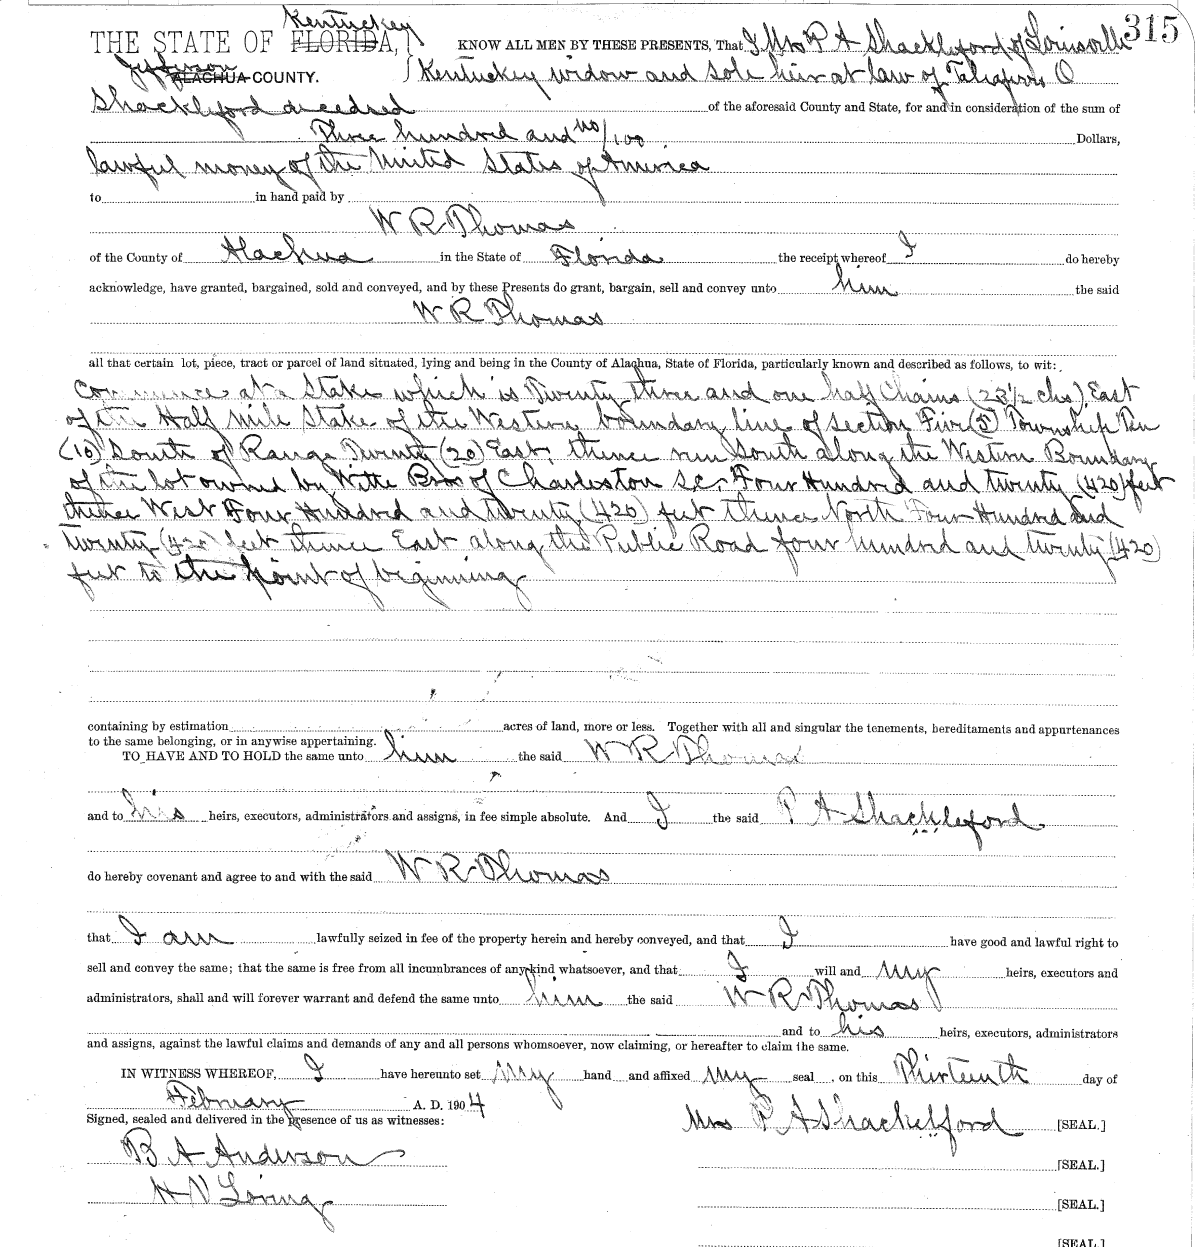 315
Kentuckey
THE STATE OF FLORIDA,
KNOW ALL MEN BY THESE PRESENTS, That I Mrs P A Shackleford of Louisville
Jefferson
ALACHUA COUNTY.
Kentuckey widow and sole heir at law of O
Shackleford deceased of the aforesaid County and State, for and in consideration of the sum of
Three hundred and no/100 Dollars,
lawful money of the United States of America
to in hand paid by
W R Thomas
of the County of Alachua in the State of Florida the receipt whereof I do hereby
acknowledge, have granted, bargained, sold and conveyed, and by these Presents do grant, bargain, sell and convey unto him the said
W R Thomas
all that certain lot, piece, tract or parcel of land situated, lying and being in the County of Alachua, State of Florida, particularly known and described as follows, to wit:
Commence at a Stake which is Twenty three and one half Chains (23 1/2 chs) East
of the Half Mile Stake of the Western boundary line of section Five (5) Township Ten
(10) South of Range Twenty (20) East, thence run South along the Western Boundary
of the lot owned by Witte Bros of Charleston S.C. Four Hundred and twenty (420) feet
thence West Four Hundred and twenty (420) feet thence North Four Hundred and
Twenty (420) feet thence East along the Public Road four hundred and twenty (420)
feet to the point of beginning
containing by estimation acres of land, more or less. Together with all and singular the tenements, hereditaments and appurtenances
to the same belonging, or in anywise appertaining.
TO HAVE AND TO HOLD the same unto him the said W R Thomas
and to his heirs, executors, administrators and assigns, in fee simple absolute. And I the said P A Shackleford
do hereby covenant and agree to and with the said W R Thomas
that I am lawfully seized in fee of the property herein and hereby conveyed, and that I have good and lawful right to
sell and convey the same; that the same is free from all incumbrances of any kind whatsoever, and that I will and my heirs, executors and
administrators, shall and will forever warrant and defend the same unto him the said W R Thomas
and to his heirs, executors, administrators
and assigns, against the lawful claims and demands of any and all persons whomsoever, now claiming, or hereafter to claim the same.
IN WITNESS WHEREOF, I have hereunto set my hand and affixed my seal on this Thirteenth day of
February A. D. 1904
Signed, sealed and delivered in the presence of us as witnesses:
Mrs P A Shackelford [SEAL.]
B A Anderson
[SEAL.]
H N Loring
[SEAL.]
[SEAL.]